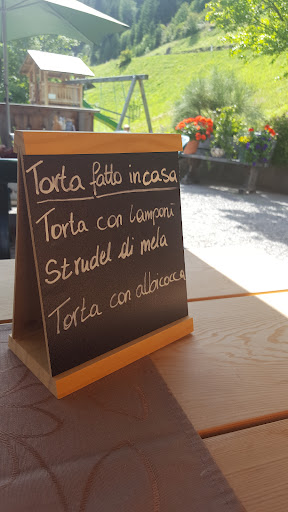 Torta fatto in casa
Torta con Lamponi
Strudel di mela
Torta con albicocca